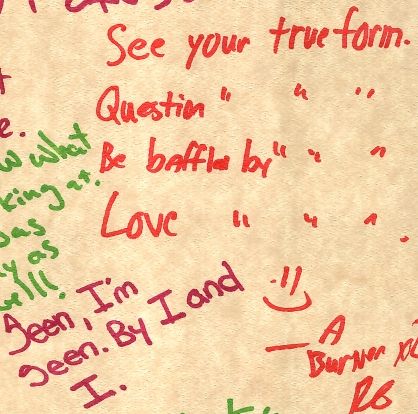 See your true form.
Question " " "
Be baffled by " " "
Love " " " .
:)
— A
Burner xo
RB
e.
what
king at.
as
y as
well.
Seen, I'm
seen. By I and
I.